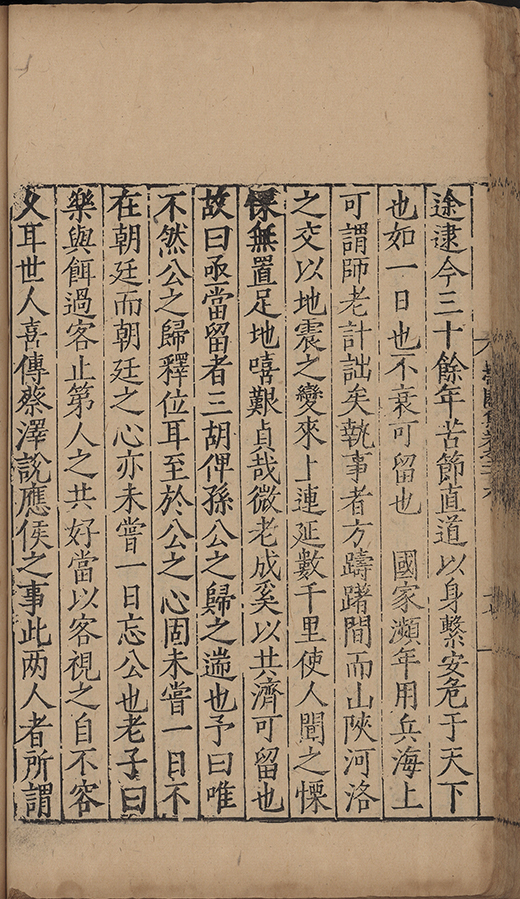 途逮今三十餘年苦節直道以身繫安危于天下
也如一日也不衰可留也　國家瀕年用兵海上
可謂師老計詘矣執事者方躊躇間而山陜河洛
之交以地震之變來上連延數千里使人聞之慄
慄無置足地嘻艱貞哉微老成奚以共濟可留也
故曰亟當留者三胡俾孫公之歸之遄也予曰唯
不然公之歸釋位耳至於公之心固未嘗一日不
在朝廷而朝廷之心亦未嘗一日忘公也老子曰
樂與餌過客止第人之共好當以客視之自不容
久耳世人喜傳蔡澤說應侯之事此两人者所謂